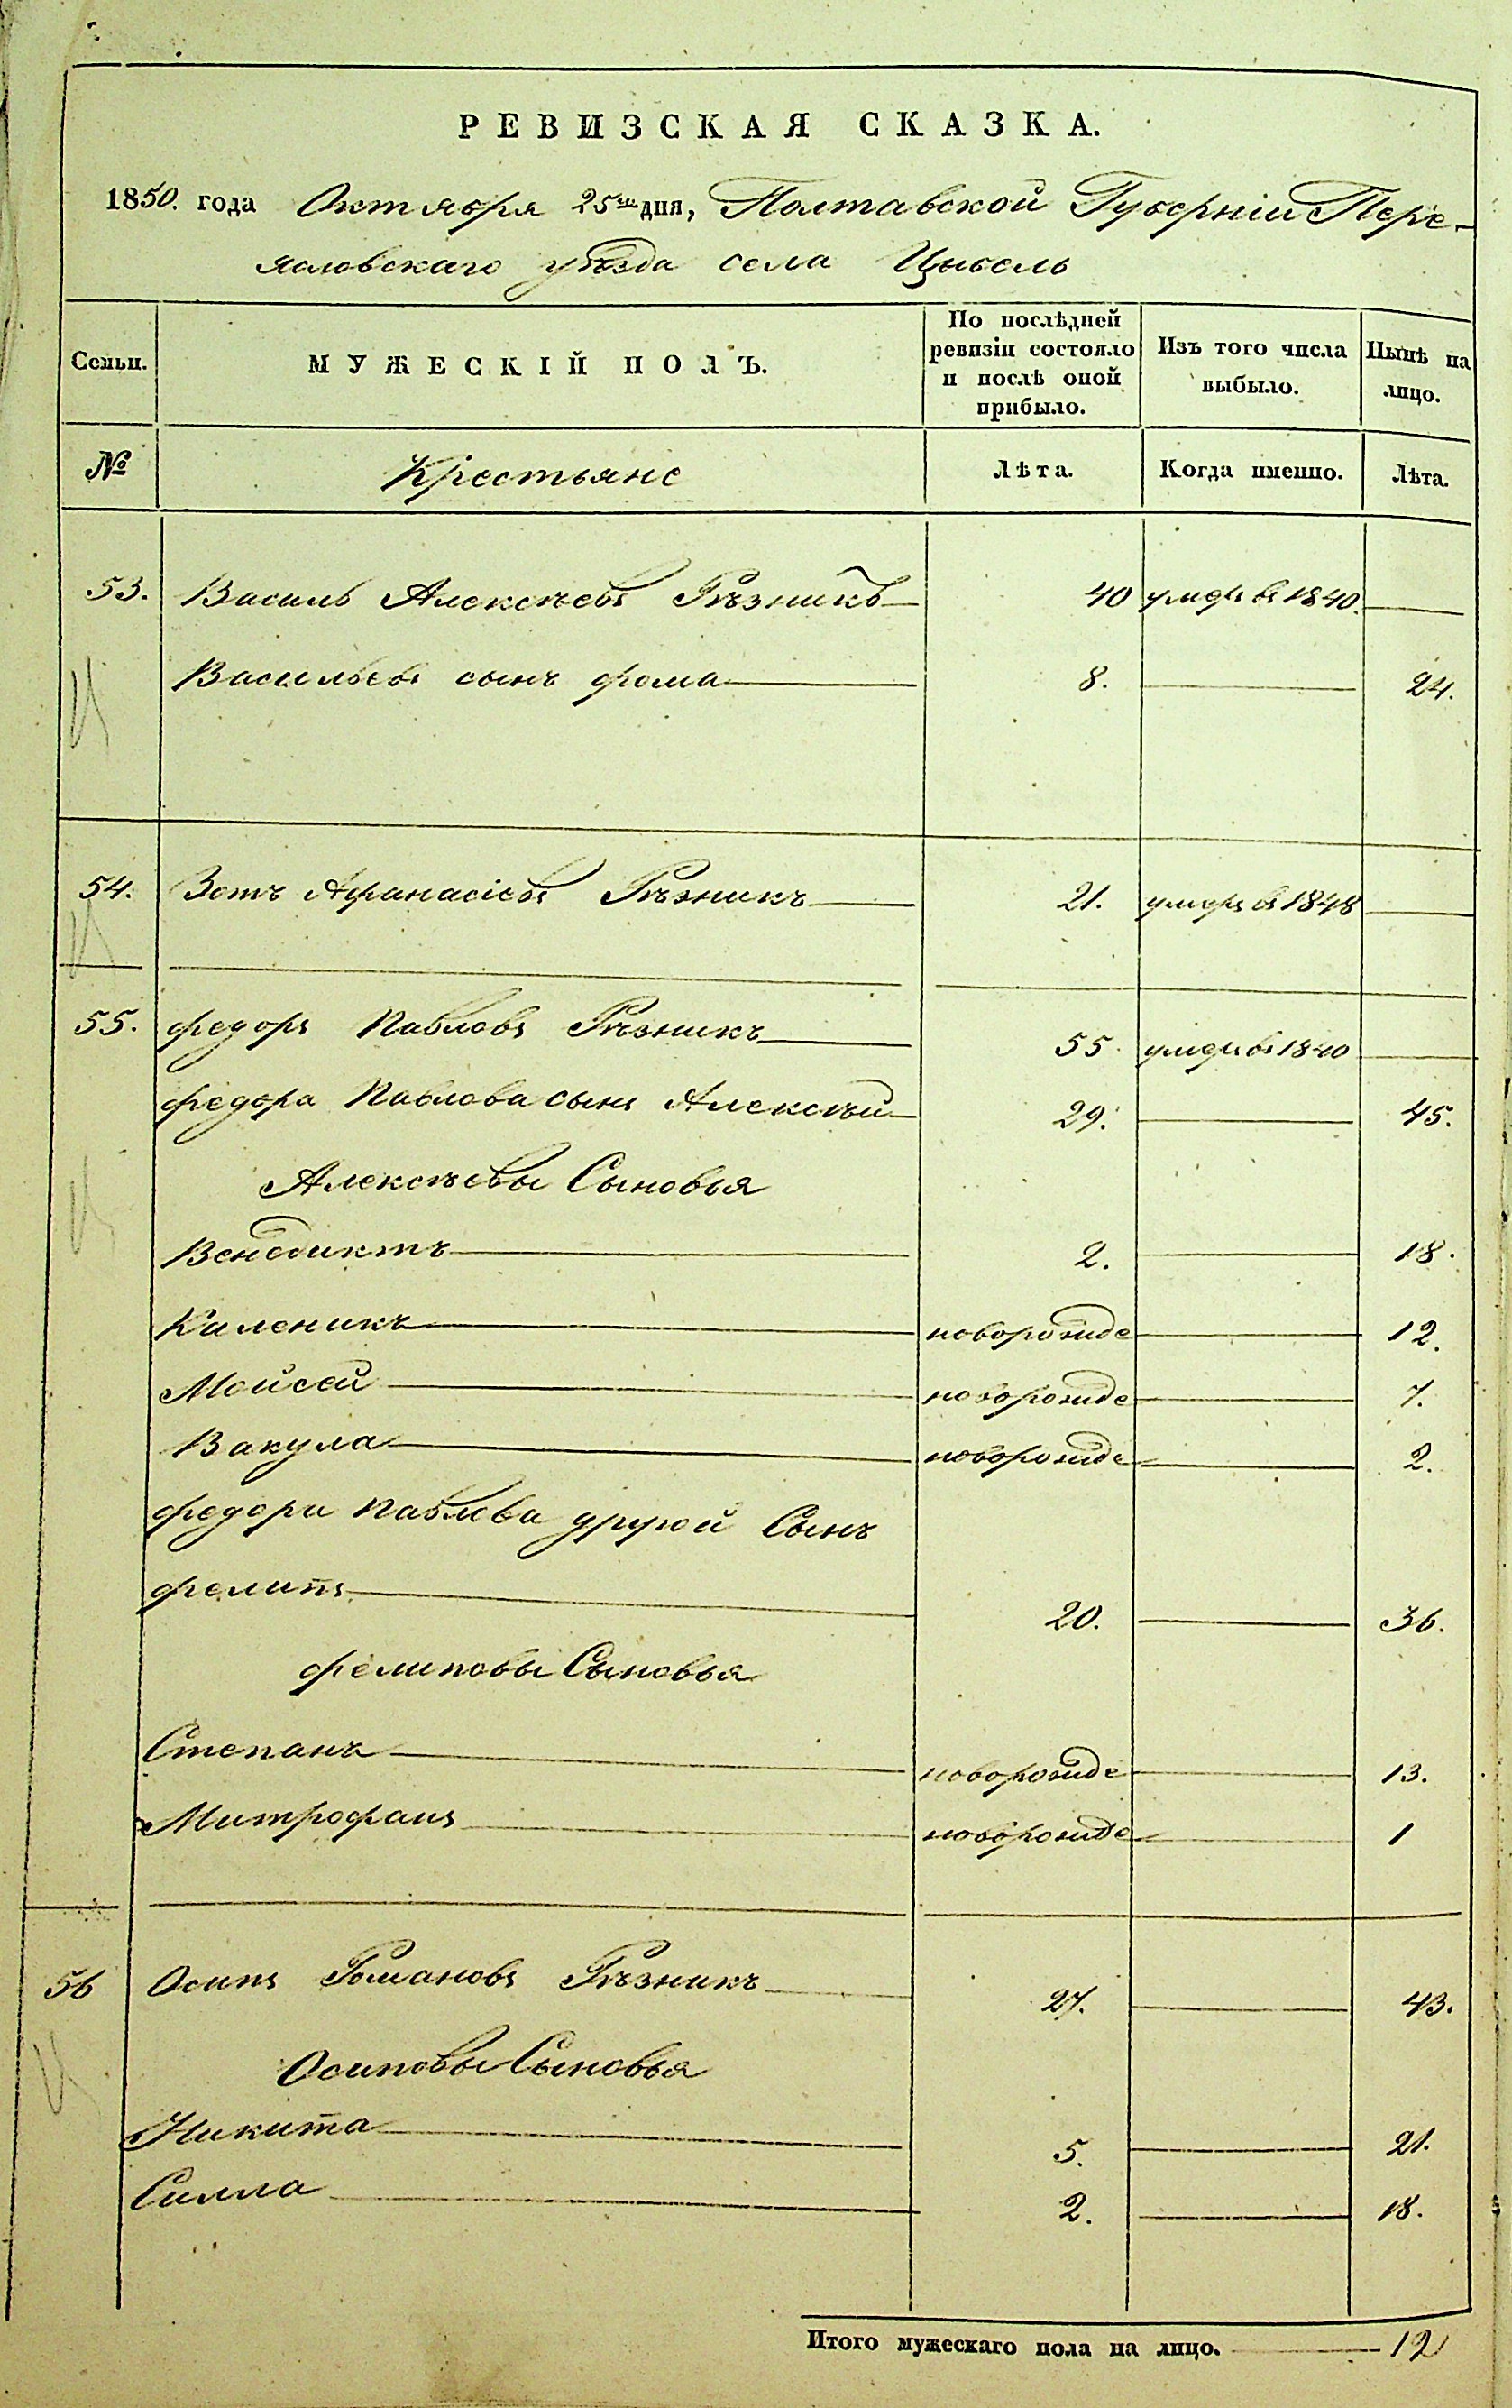 РЕВИЗСКАЯ СКАЗКА.
1850. года Октября 25го дня, Полтавской Губерніи Пере-
яславскаго уѣзда села Цыбель
Семьи. МУЖЕСКІЙ ПОЛЪ. По послѣдней ревизіи состояло и послѣ оной прибыло. Изъ того числа выбыло. Нынѣ на лицо.
№ Крестьяне Лѣта. Когда именно. Лѣта.
53. Василь Алексѣевъ Рѣзникъ 40 умеръ въ 1840.
Васильевъ сынъ Фома 8. 24.
54. Зотъ Афанасіевъ Рѣзникъ 21. умеръ въ 1848
55. Федоръ Павловъ Рѣзникъ 55. умеръ въ 1840
Федора Павлова сынъ Алексѣй 29. 45.
Алексѣевы Сыновья
Венедиктъ 2. 18.
Каленикъ новорожде 12.
Мойсей новорожде 7.
Вакула новорожде 2.
Федора Павлова другой Сынъ
Фелипъ 20. 36.
Фелиповы Сыновья
Степанъ новорожде 13.
Митрофанъ новорожде 1
56 Осипъ Романовъ Рѣзникъ 27. 43.
Осиповы Сыновья
Никита 5. 21.
Силла 2. 18.
Итого мужескаго пола на лицо. 12